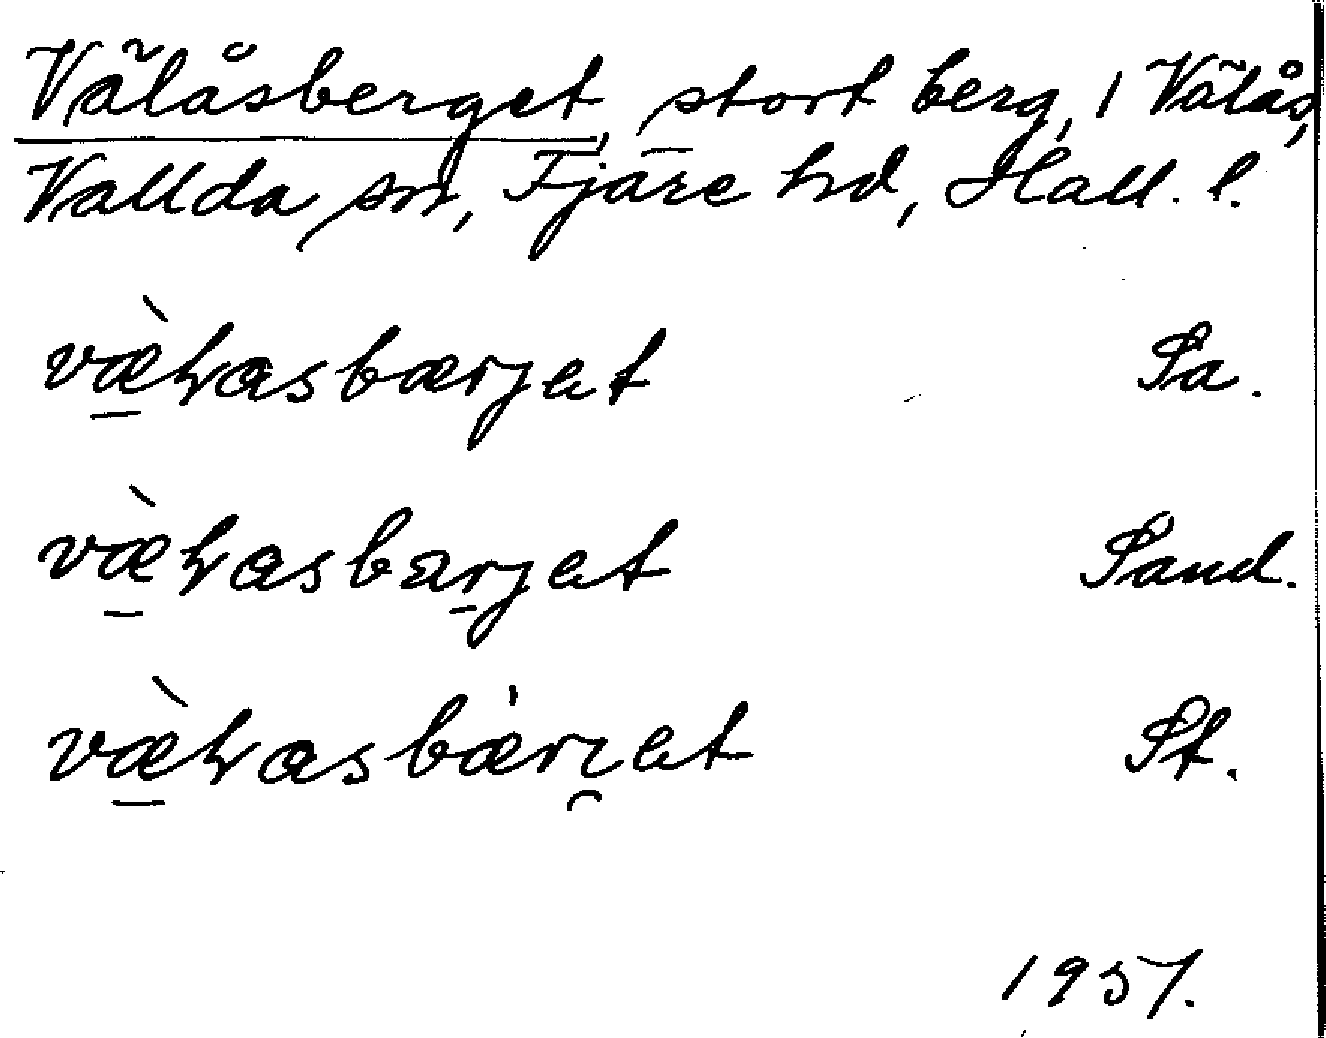 Välåsberget, stort berg, i Välås,
Vallda sn, Fjäre hd, Hall. l.
væ̲̀ɫasbærjet Sa.
væ̲̀ɫasbær̲jet Sand.
væ̲̀ɫasbæ̍rjet St.
1957.